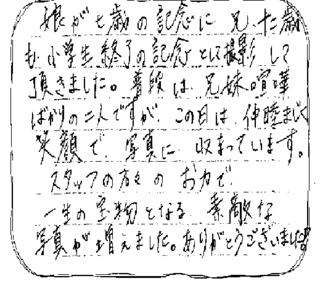 娘が七歳の記念に 兄、十二歳
も、小学生終了の記念として撮影して
頂きました。普段は、兄妹喧嘩
ばかりの二人ですが、この日は、仲睦まじく
笑顔で、写真に、収まっています。
スタッフの方々のお力で、
一生の宝物となる、素敵な
写真が増えました。ありがとうございました。